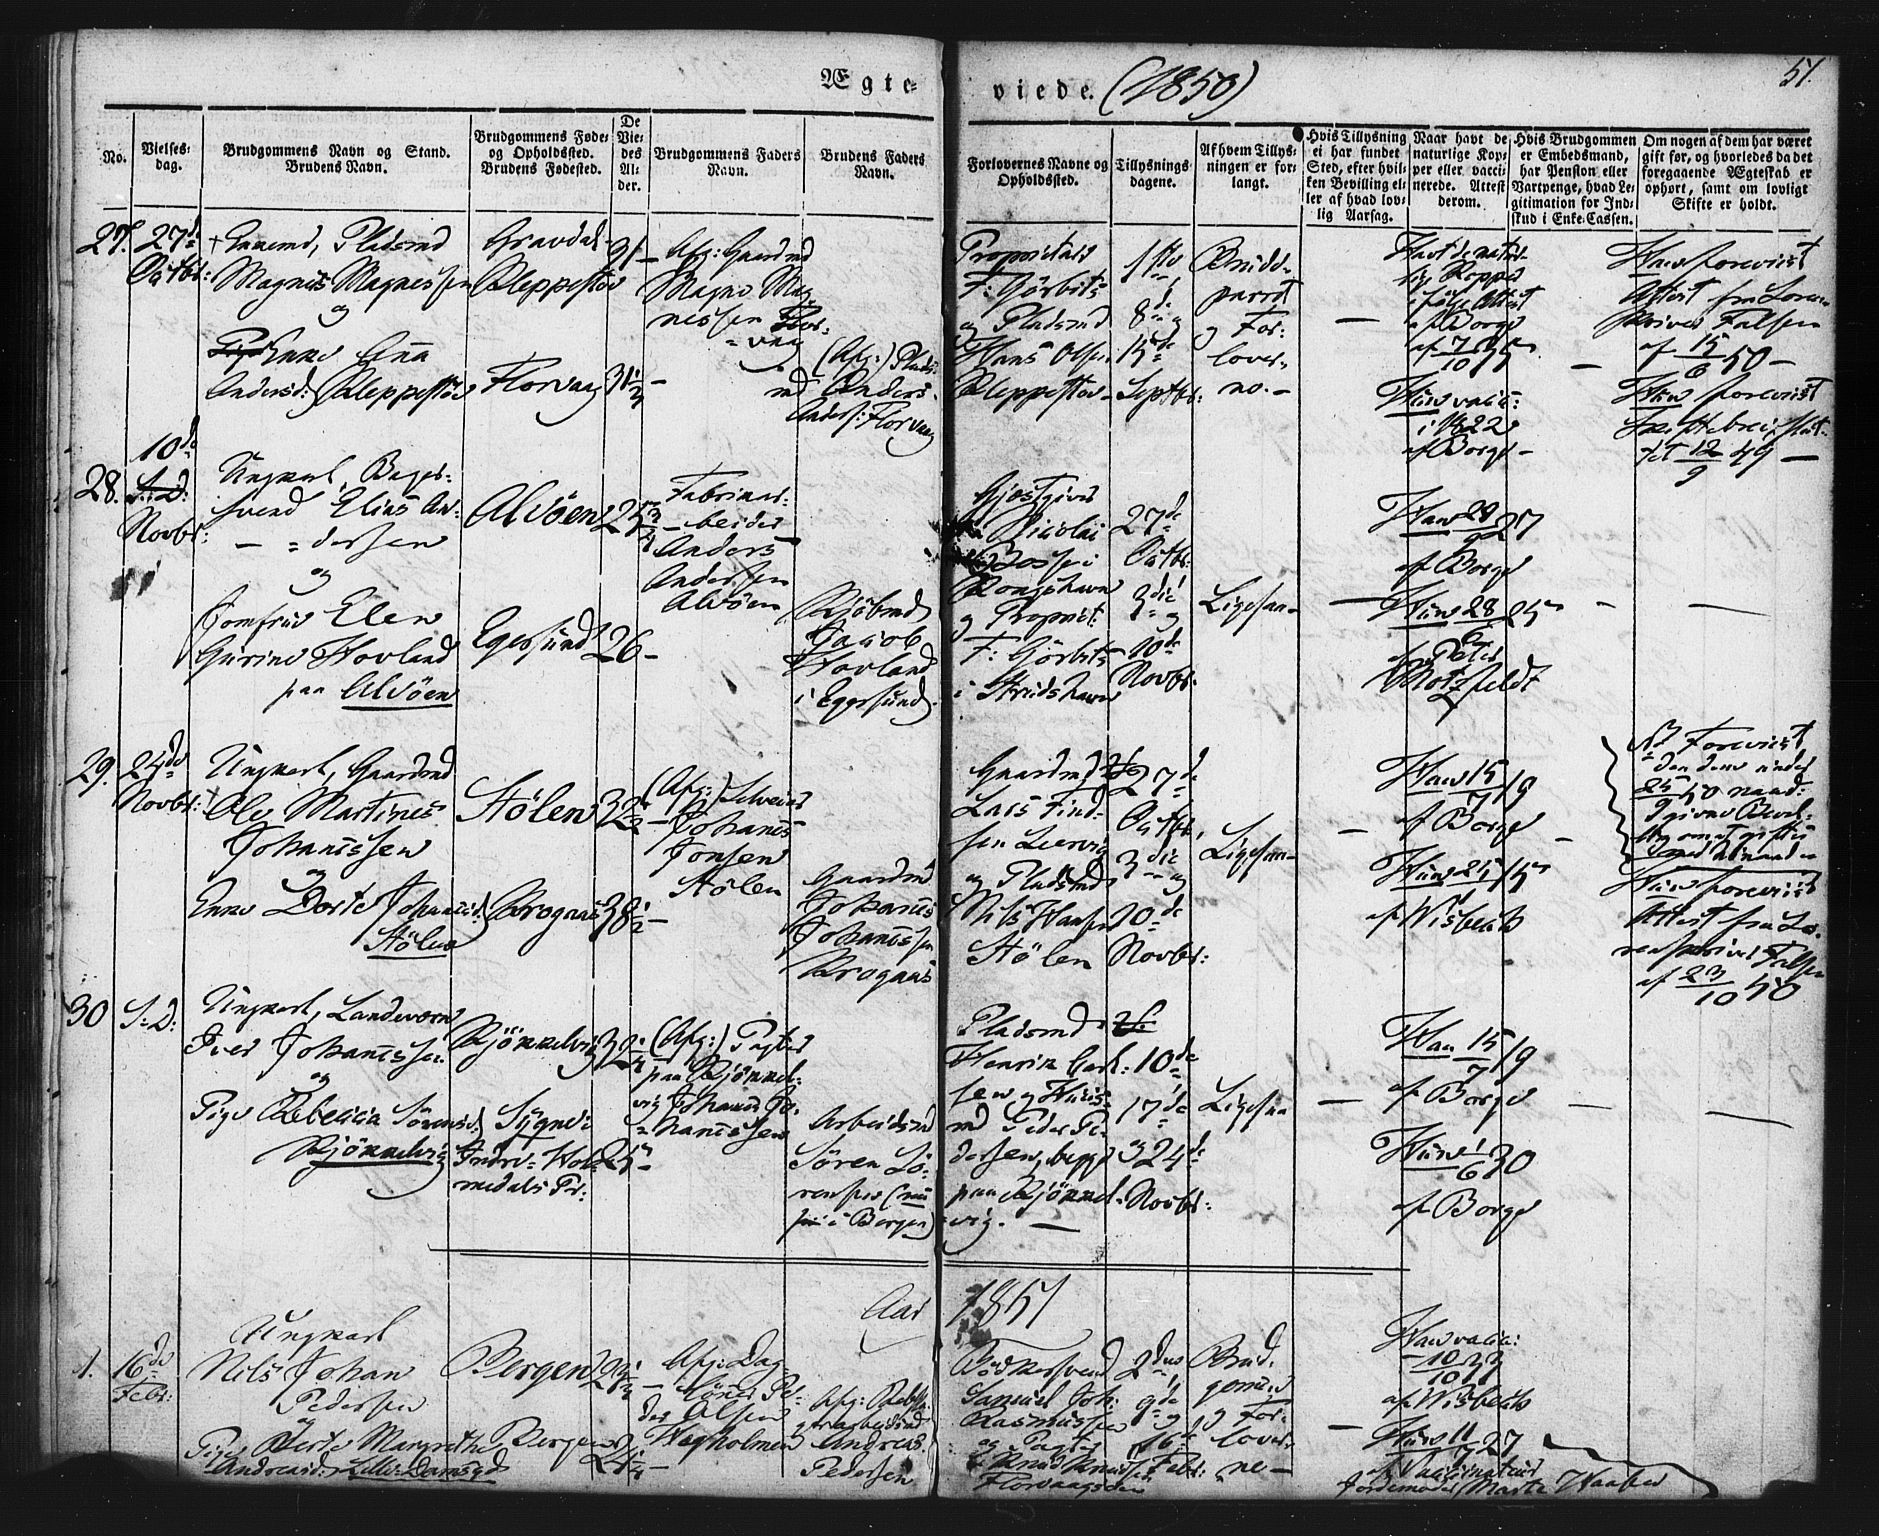 Ægte-
viede. (1850)
51.
No.
Vielses-
dag.
Brudgommens Navn og Stand.
Brudens Navn.
Brudgommens Føde-
og Opholdssted.
Brudens Fødested.
De
Vie-
des
Al-
der.
Brudgommens Faders
Navn.
Brudens Faders
Navn.
Forlovernes Navne og
Opholdssted.
Tillysnings-
dagene.
Af hvem Tillys-
ningen er for-
langt.
Hvis Tillysning
ei har fundet
Sted, efter hvil-
ken Bevilling el-
ler af hvad lov-
lig Aarsag.
Naar havt de
naturlige Kop-
per eller vacci-
nerede. Attest
derom.
Hvis Brudgommen
er Embedsmand,
har Pension eller
Vartpenge, hvad Le-
gitimation for Ind-
skud i Enke-Cassen.
Om nogen af dem har været
gift før, og hvorledes da det
foregaaende Ægteskab er
ophørt, samt om lovligt
Skifte er holdt.
27.
27de
Octbr:
Enkemd, Pladsmd
Magnus Magnessen
og
Enke Anna
Andersd: Kleppestøe
Gravdal
Kleppestøe
Florvaag
31 1/2
Afg: Gaardmd
Magne Mag-
nissen Flor-
vaag
(Afg:) Plads-
md Anders
Anders: Florvaag
Proprietair
F: Görbitz
og Pladsmd
Hans Olsen
Kleppestøe
1ste
8de og
15de
Septbr:
Brude-
parret
og For-
lover-
ne.
Havt de natur-
lig Kopper
ifölge Attest
af Borge
Hun vacci:
i 1822
af Borge
Han forevist
Attest fra Soren-
skriver Falsen
af 15/6 50
Hun forevist
Skiftebrev, slut-
tet 12/9 49
28.
10de
S: D:
Novbr:
Ungkarl, Bager-
svend Elias An-
dersen
og
Jomfrue Elen
Gurine Hovland
paa Alvöen
Alvöen
Egersund
25 3/4
26
Fabrikar-
beider
Anders
Andersen
Alvöen
Kjöbmd
Jacob
Hovland
i Egersund
Gjæstgiver
Nicolai
Bosse i
Kongshavn
og Propriet:
F: Görbitz
i Strudshavn
27de
Octbr:
3die og
10de
Novbr:
Ligesaa
Han 28/9 27
af Borge
Hun 28/6 25
af Peter
Motzfeldt
29.
24de
Novbr:
Ungkarl, Gaardmd
Ole Martines
Johannessen
og
Enke Dorte Johannesd:
Stölen
Stölen
Krognæs
32 1/2
38 1/2
(Afg:) Selveier
Johannes
Jonsen
Stölen
Gaardmd
Johannes
Johannessen
Krognæs
Gaardmd
Lars Find-
sen Leervig
og Pladsmd
Nils Hansen
Stölen
27de
Octbr,
3die og
10de
Novbr:
Ligesaa
Han 15/7 19
af Borge
Hun 25/1 15
af Wisbech
NB Forevist
den dem under
25/10 50 naad:
givne Bevil-
Hun forevist
Attest fra So-
renskriver Falsen
af 23/10 50
30
S: D:
Ungkarl, Landeværn
Iver Johannessen
og
Pige Rebecca Sörensd:
Kjökkelvig
Kjökkelvig
Sygne i
Indre Hol-
medals Pr:
32 1/4
25
(Afg:) Pagter
paa Kjökkel-
vig Johannes Jo-
hannessen
Arbeidsmd
Sören Sö-
rensen (nu
i Bergen)
Pladsmd
Henrik Carl-
sen og Huus-
md Peder Pe-
dersen, begge
paa Kjökkel-
vig.
10de
17de
og 24de
Novbr:
Ligesaa
Han 15/7 19
af Borge
Hun 1/6 30
af Borge
Aar 1851
1.
16de
Febr:
Ungkarl
Nils Johan
Pedersen
og
Pige Berte Margrethe
Andreasd: Lille-Damsgd
Bergen
Bergen
29 1/2
24 1/4
Afg: Dag-
lönner Pe-
der Olsen
Wagholmen
Afg:
Andreas
Pedersen
Bödkersvend
Samuel Joh:
Rasmussen
og Pagter
Knud Knudsen
Florvaagsøen
2den
9de og
16de
Febr:
Brud-
gomen
og For-
lover-
ne
Han vacci:
10/10 33
af Wisbech
Hun 11/7 27
af Vaccinateur
Jordemoder Marte Waaber